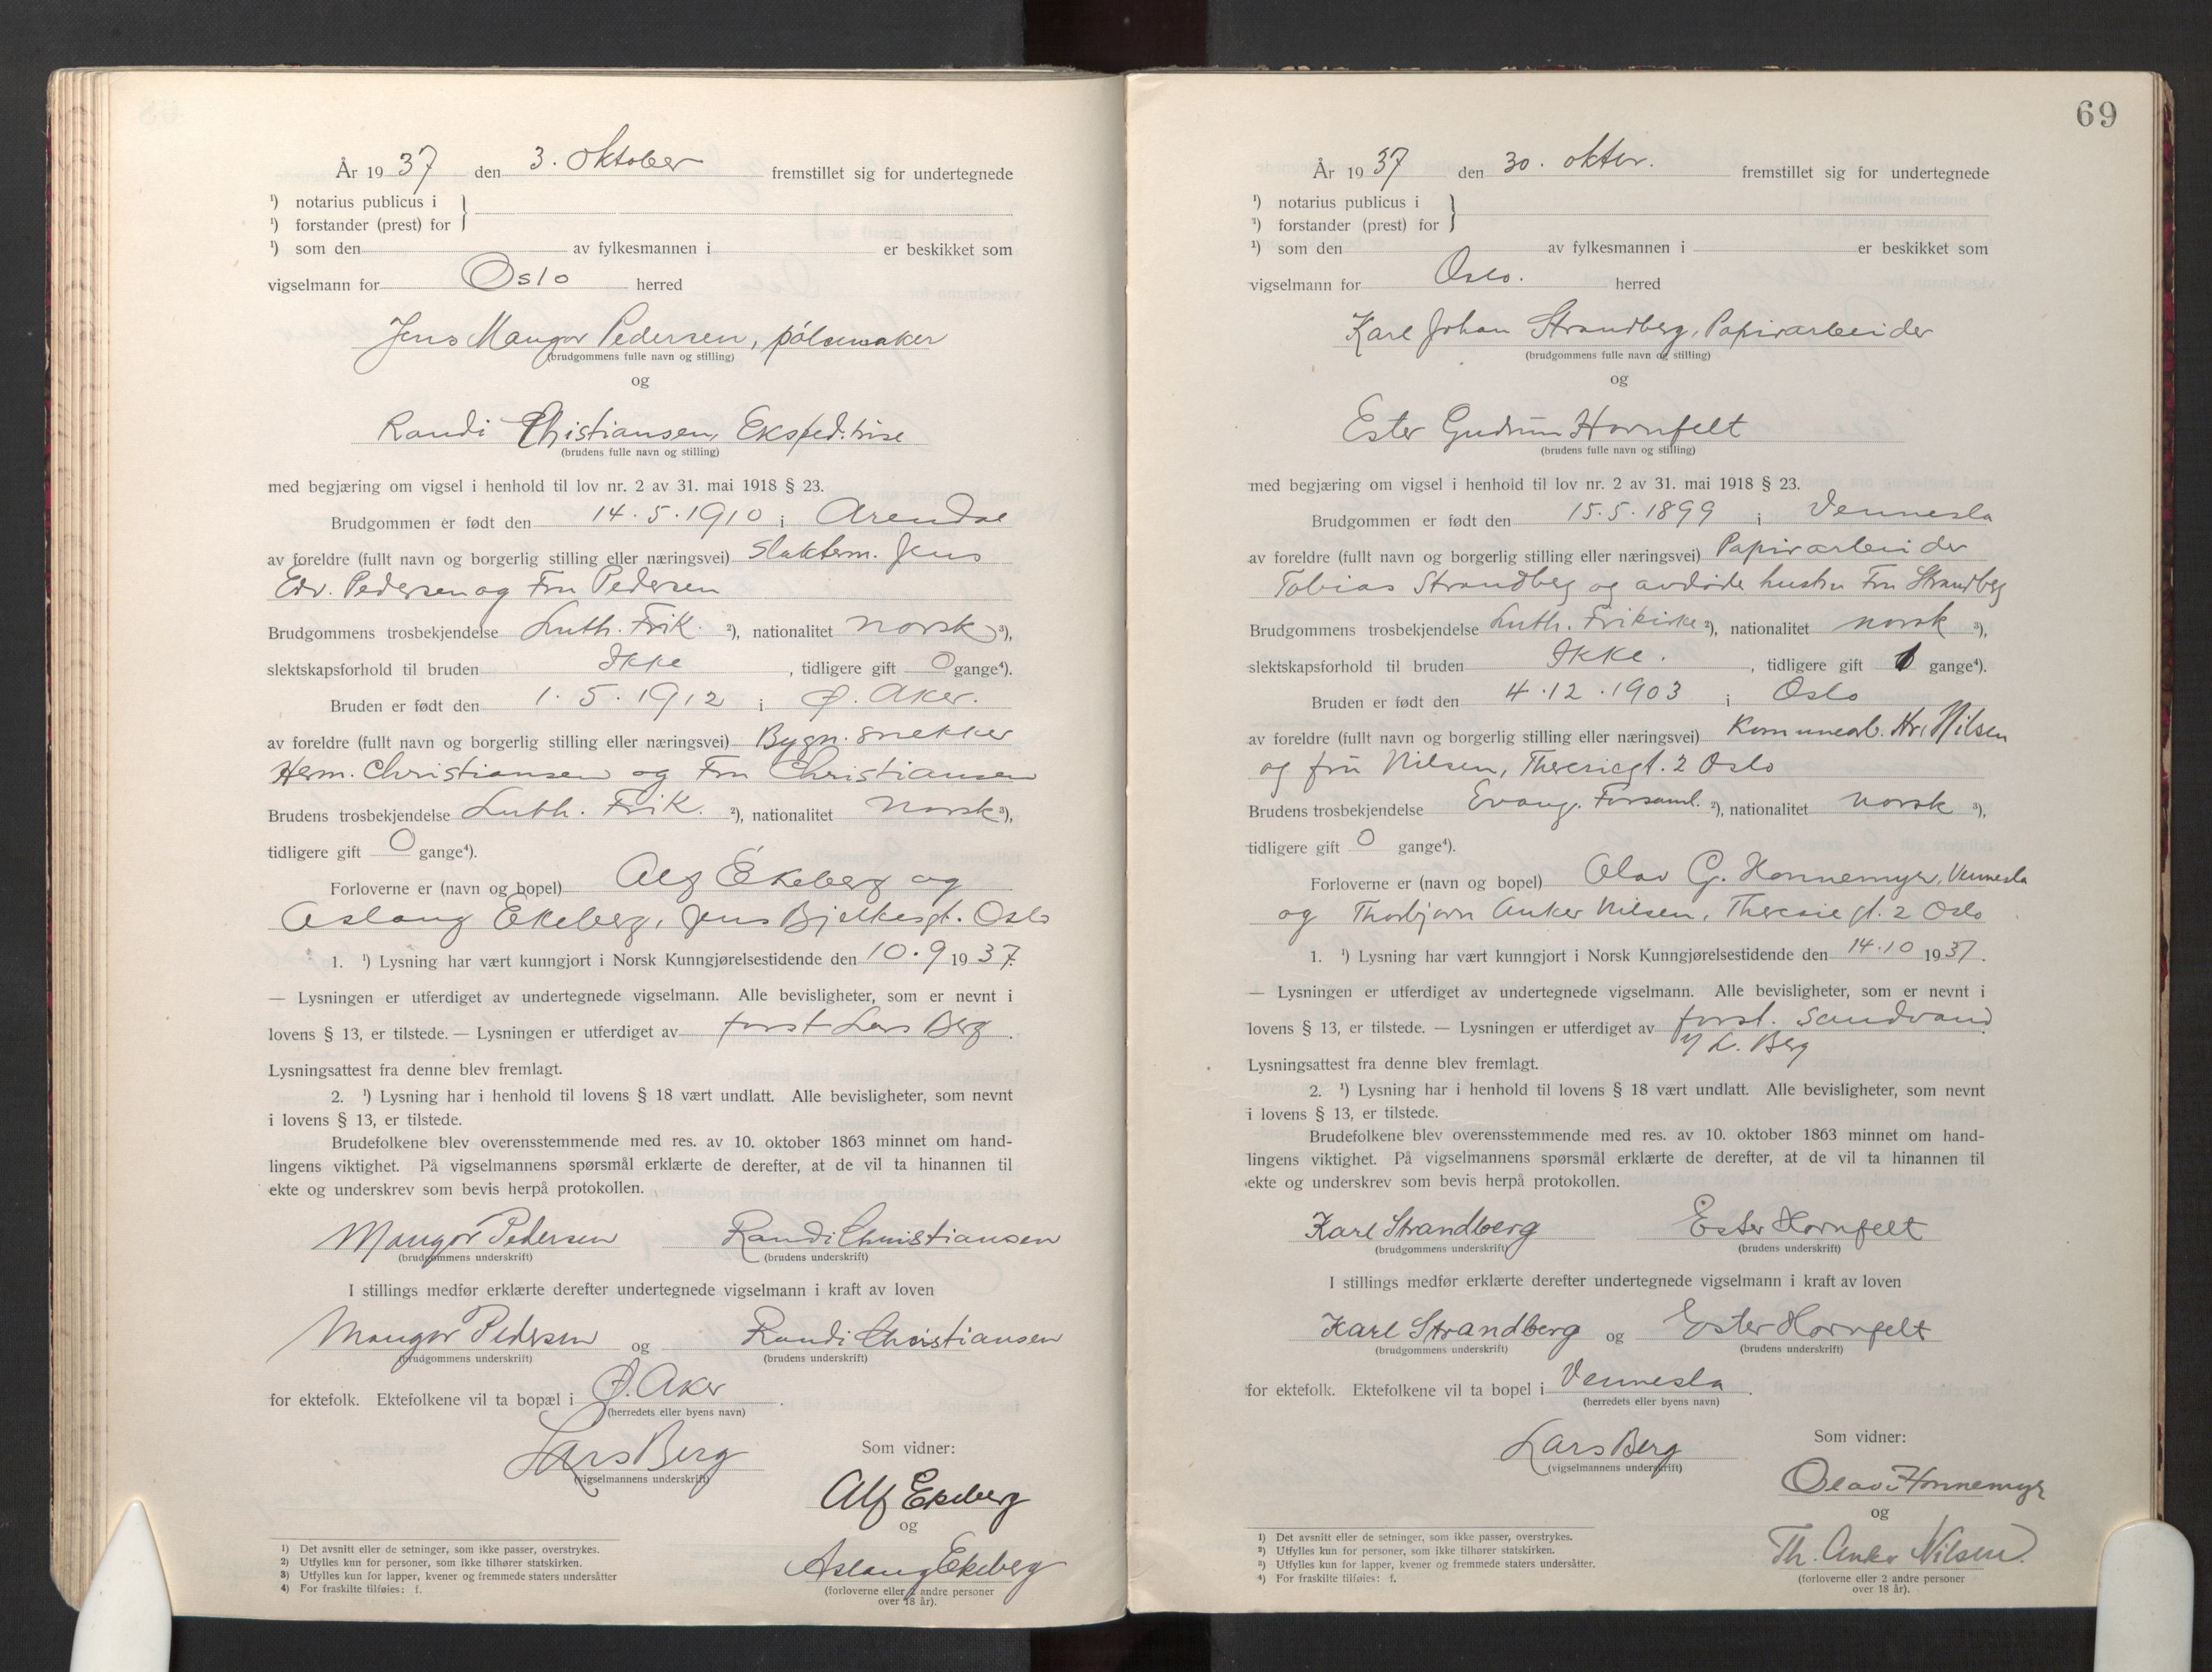 År 1937 den 3. oktober fremstillet sig for undertegnede
¹) notarius publicus i
¹) forstander (prest) for
¹) som den av fylkesmannen i er beskikket som
vigselmann for Oslo herred
Jens Mangor Pedersen, pølsemaker
(brudgommens fulle navn og stilling)
og
Randi Christiansen, Eksped.trise
(brudens fulle navn og stilling)
med begjæring om vigsel i henhold til lov nr. 2 av 31. mai 1918 § 23.
Brudgommen er født den 14.5.1910 i Arendal
av foreldre (fullt navn og borgerlig stilling eller næringsvei) Slakterm. Jens
Edv. Pedersen og Fru Pedersen
Brudgommens trosbekjendelse Luth. Frik. ²), nationalitet norsk ³),
slektskapsforhold til bruden Ikke, tidligere gift 0 gange⁴).
Bruden er født den 1.5.1912 i Ø. Aker.
av foreldre (fullt navn og borgerlig stilling eller næringsvei) Bygn. snekker
Herm. Christiansen og Fru Christiansen
Brudens trosbekjendelse Luth. Frik. ²), nationalitet norsk ³),
tidligere gift 0 gange⁴).
Forloverne er (navn og bopel) Alf Ekeberg og
Aslaug Ekeberg, Jens Bjelkesgt. Oslo
1. ¹) Lysning har vært kunngjort i Norsk Kunngjørelsestidende den 10.9 1937.
— Lysningen er utferdiget av undertegnede vigselmann. Alle bevisligheter, som er nevnt i
lovens § 13, er tilstede. — Lysningen er utferdiget av forst Lars Berg.
Lysningsattest fra denne blev fremlagt.
2. ¹) Lysning har i henhold til lovens § 18 vært undlatt. Alle bevisligheter, som nevnt
i lovens § 13, er tilstede.
Brudefolkene blev overensstemmende med res. av 10. oktober 1863 minnet om hand-
lingens viktighet. På vigselmannens spørsmål erklærte de derefter, at de vil ta hinannen til
ekte og underskrev som bevis herpå protokollen.
Mangor Pedersen Randi Christiansen
(brudgommens underskrift) (brudens underskrift)
I stillings medfør erklærte derefter undertegnede vigselmann i kraft av loven
Mangor Pedersen og Randi Christiansen
(brudgommens underskrift) (brudens underskrift)
for ektefolk. Ektefolkene vil ta bopæl i Ø. Aker.
(herredets eller byens navn)
Lars Berg
(vigselmannens underskrift)
Som vidner:
Alf Ekeberg
og
Aslaug Ekeberg
(forloverne eller 2 andre personer
over 18 år).
1) Det avsnitt eller de setninger, som ikke passer, overstrykes.
2) Utfylles kun for personer, som ikke tilhører statskirken.
3) Utfylles kun for lapper, kvener og fremmede staters undersåtter
4) For fraskilte tilføies: f.
69
År 1937 den 30. oktbr. fremstillet sig for undertegnede
¹) notarius publicus i
¹) forstander (prest) for
¹) som den av fylkesmannen i er beskikket som
vigselmann for Oslo. herred
Karl Johan Strandberg, Papirarbeider
(brudgommens fulle navn og stilling)
og
Ester Gudrun Hornfelt
(brudens fulle navn og stilling)
med begjæring om vigsel i henhold til lov nr. 2 av 31. mai 1918 § 23.
Brudgommen er født den 15.5.1899 i Vennesla
av foreldre (fullt navn og borgerlig stilling eller næringsvei) Papirarbeider
Tobias Strandberg og avdøde hustru Fru Strandberg
Brudgommens trosbekjendelse Luth. Frikirke ²), nationalitet norsk ³),
slektskapsforhold til bruden Ikke., tidligere gift 1 gange⁴).
Bruden er født den 4.12.1903 i Oslo
av foreldre (fullt navn og borgerlig stilling eller næringsvei) Kommunearb. Hr. Nilsen
og fru Nilsen, Theresiegt. 2 Oslo
Brudens trosbekjendelse Evang. Forsaml. ²), nationalitet norsk ³),
tidligere gift 0 gange⁴).
Forloverne er (navn og bopel) Olav G. Honnemyr, Vennesla
og Thorbjørn Anker Nilsen, Theresiegt. 2 Oslo
1. ¹) Lysning har vært kunngjort i Norsk Kunngjørelsestidende den 14.10 1937.
— Lysningen er utferdiget av undertegnede vigselmann. Alle bevisligheter, som er nevnt i
lovens § 13, er tilstede. — Lysningen er utferdiget av forst. Sandvand
v/ L. Berg
Lysningsattest fra denne blev fremlagt.
2. ¹) Lysning har i henhold til lovens § 18 vært undlatt. Alle bevisligheter, som nevnt
i lovens § 13, er tilstede.
Brudefolkene blev overensstemmende med res. av 10. oktober 1863 minnet om hand-
lingens viktighet. På vigselmannens spørsmål erklærte de derefter, at de vil ta hinannen til
ekte og underskrev som bevis herpå protokollen.
Karl Strandberg Ester Hornfelt
(brudgommens underskrift) (brudens underskrift)
I stillings medfør erklærte derefter undertegnede vigselmann i kraft av loven
Karl Strandberg og Ester Hornfelt
(brudgommens underskrift) (brudens underskrift)
for ektefolk. Ektefolkene vil ta bopel i Vennesla.
(herredets eller byens navn)
Lars Berg
(vigselmannens underskrift)
Som vidner:
Olav Honnemyr
og
Th. Anker Nilsen.
(forloverne eller 2 andre personer
over 18 år).
1) Det avsnitt eller de setninger, som ikke passer, overstrykes.
2) Utfylles kun for personer, som ikke tilhører statskirken.
3) Utfylles kun for lapper, kvener og fremmede staters undersåtter.
4) For fraskilte tilføies: f.